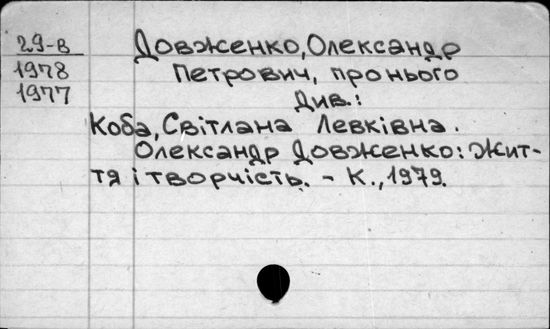 29-в
1978
1977
Довженко, Олександр
Петрович, про нього
Див.:
Коба, Світлана Левківна.
Олександр Довженко: Жит-
тя і творчість. - К., 1979.